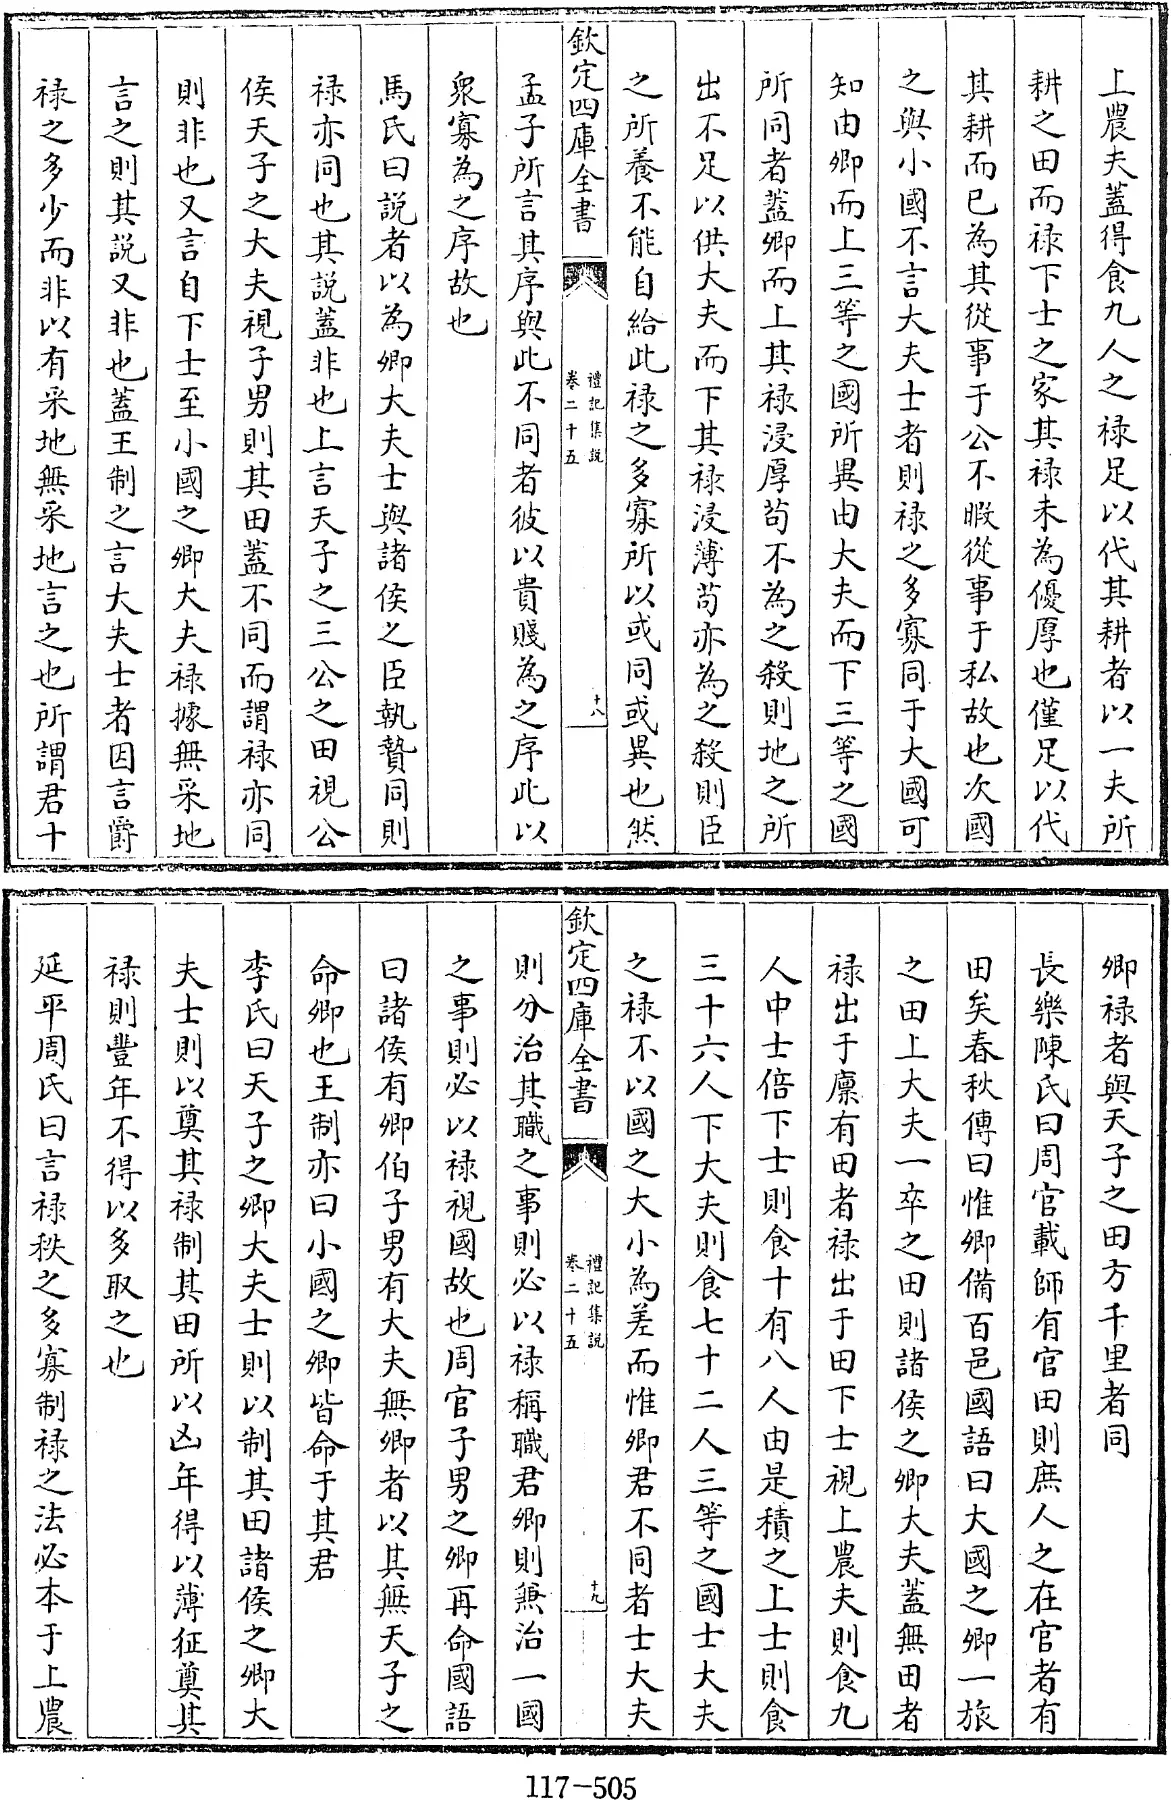 上農夫蓋得食九人之禄足以代其耕者以一夫所
耕之田而禄下士之家其禄未為優厚也僅足以代
其耕而已為其從事于公不暇從事于私故也次國
之與小國不言大夫士者則禄之多寡同于大國可
知由卿而上三等之國所異由大夫而下三等之國
所同者蓋卿而上其禄浸厚苟不為之殺則地之所
出不足以供大夫而下其禄浸薄苟亦為之殺則臣
之所養不能自給此禄之多寡所以或同或異也然
欽定四庫全書
禮記集説
卷二十五
十八
孟子所言其序與此不同者彼以貴賤為之序此以
衆寡為之序故也
馬氏曰説者以為卿大夫士與諸侯之臣執贄同則
禄亦同也其説蓋非也上言天子之三公之田視公
侯天子之大夫視子男則其田蓋不同而謂禄亦同
則非也又言自下士至小國之卿大夫禄據無采地
言之則其説又非也蓋王制之言大夫士者因言爵
禄之多少而非以有采地無采地言之也所謂君十
卿禄者與天子之田方千里者同
長樂陳氏曰周官載師有官田則庶人之在官者有
田矣春秋傳曰惟卿備百邑國語曰大國之卿一旅
之田上大夫一卒之田則諸侯之卿大夫蓋無田者
禄出于廪有田者禄出于田下士視上農夫則食九
人中士倍下士則食十有八人由是積之上士則食
三十六人下大夫則食七十二人三等之國士大夫
之禄不以國之大小為差而惟卿君不同者士大夫
欽定四庫全書
禮記集説
卷二十五
十九
則分治其職之事則必以禄稱職君卿則兼治一國
之事則必以禄視國故也周官子男之卿再命國語
曰諸侯有卿伯子男有大夫無卿者以其無天子之
命卿也王制亦曰小國之卿皆命于其君
李氏曰天子之卿大夫士則以制其田諸侯之卿大
夫士則以奠其禄制其田所以凶年得以薄征奠其
禄則豐年不得以多取之也
延平周氏曰言禄秩之多寡制禄之法必本于上農
117-505